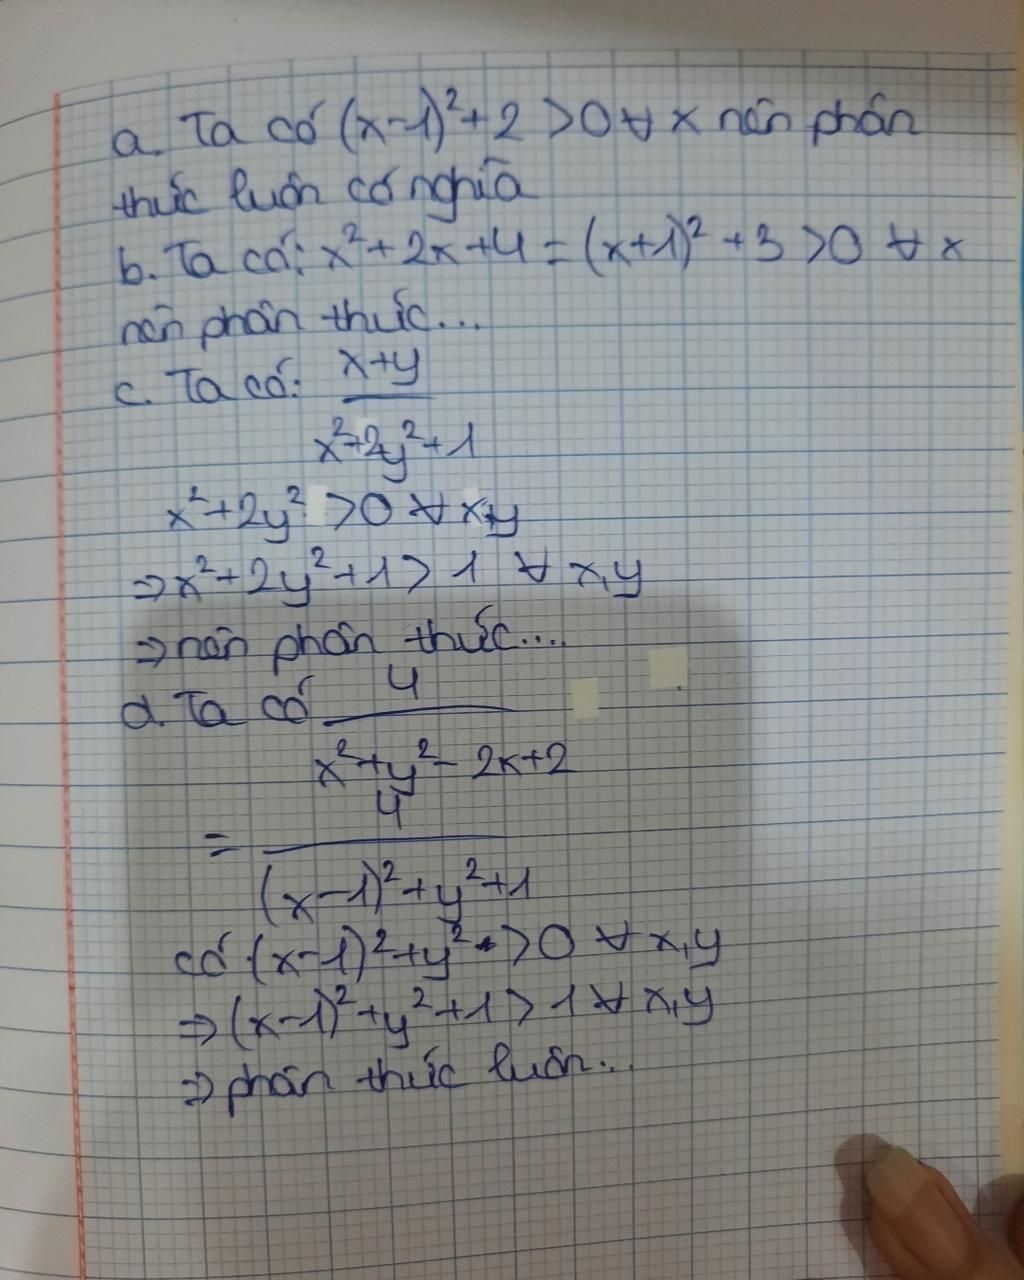 a. Ta có (x-1)²+2 >0 ∀ x nên phân
thức luôn có nghĩa
b. Ta có: x²+2x+4 = (x+1)² +3 >0 ∀ x
nên phân thức...
c. Ta có: x+y
x²+2y²+1
x²+2y² >0 ∀ x,y
⇒ x²+2y²+1 > 1 ∀ x,y
⇒ nên phân thức....
d. Ta có 4
x²+y²- 2x+2
4
=
(x-1)²+y²+1
có (x-1)²+y² >0 ∀ x,y
⇒ (x-1)²+y²+1 > 1 ∀ x,y
⇒ phân thức luôn...